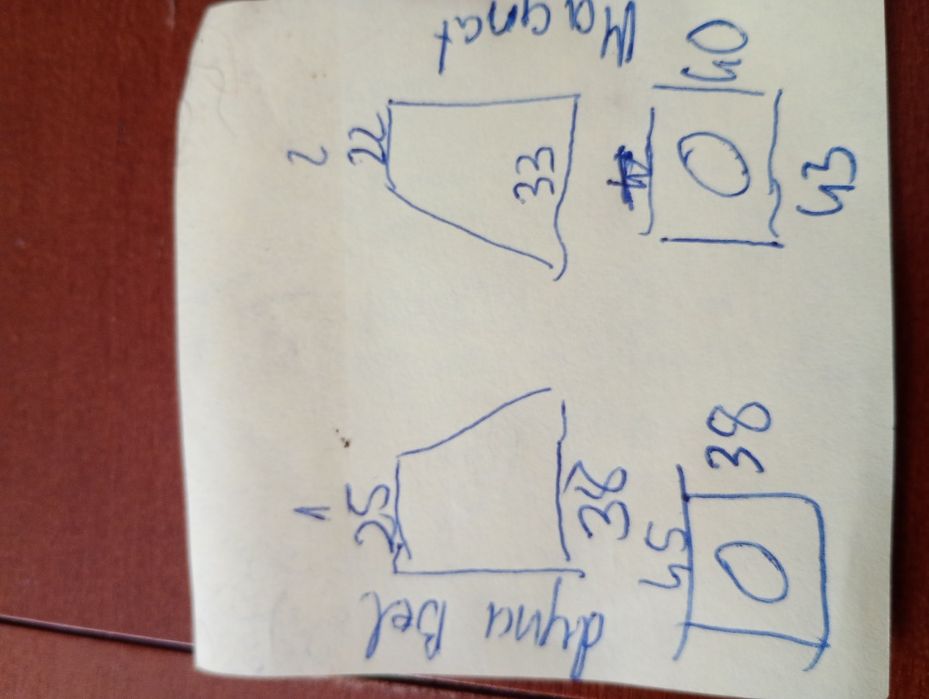 1
2
25
22
33
38
dyna Bel
Magnat
45
38
40
43